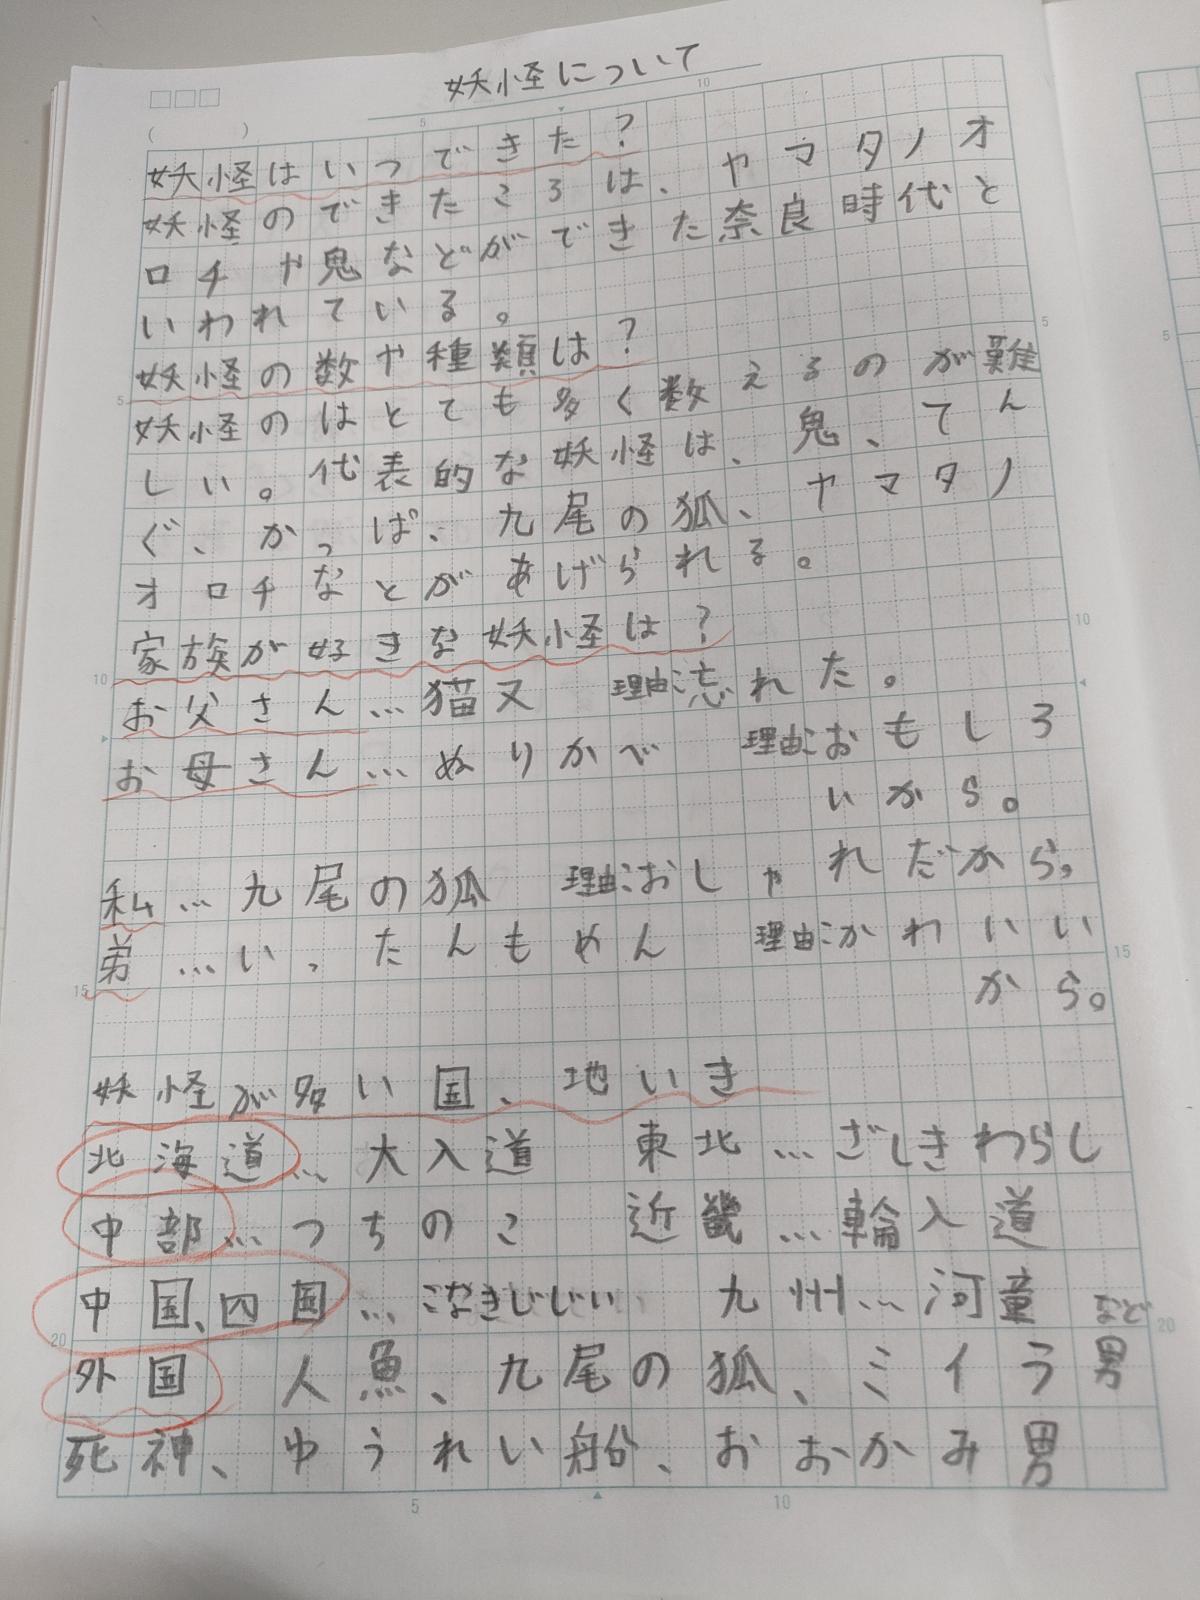 妖怪について
妖怪はいつできた?
妖怪のできたころは、ヤマタノオ
ロチや鬼などができた奈良時代と
いわれている。
妖怪の数や種類は?
妖怪のはとても多く数えるのが難
しい。代表的な妖怪は、鬼、てん
ぐ、かっぱ、九尾の狐、ヤマタノ
オロチなとがあげられる。
家族が好きな妖怪は?
お父さん…猫又 理由:忘れた。
お母さん…ぬりかべ 理由:おもしろ
いから。
私…九尾の狐 理由:おしゃれだから。
弟…いったんもめん 理由:かわいい
から。
妖怪が多い国、地いき
北海道…大入道 東北…ざしきわらし
中部…つちのこ 近畿…輪入道
中国、四国…こなきじじい 九州…河童 など
外国 人魚、九尾の狐、ミイラ男
死神、ゆうれい船、おおかみ男
5
10
5
10
15
20
5
10
15
20
5
10
5